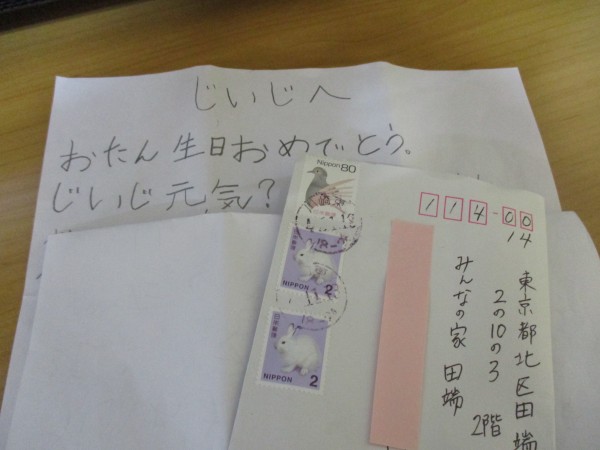 じいじへ
おたん生日おめでとう。
じいじ元気?
NIPPON 80
2
NIPPON
日本郵便
NIPPON 2
114-00
14
東京都北区田端
2の10の3 2階
みんなの家 田端